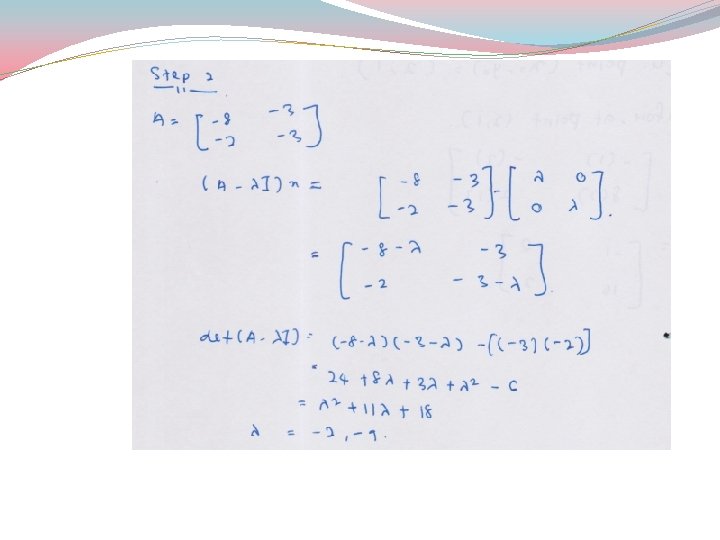 Step 2
A = [ -8 -3
-2 -3 ]
(A - λI) x = [ -8 -3 ] - [ λ 0 ]
[ -2 -3 ] [ 0 λ ].
= [ -8 - λ -3
-2 -3 - λ ].
det (A - λI) = (-8-λ)(-3-λ) - [(-3)(-2)]
= 24 + 8λ + 3λ + λ² - 6
= λ² + 11λ + 18
λ = -2, -9.